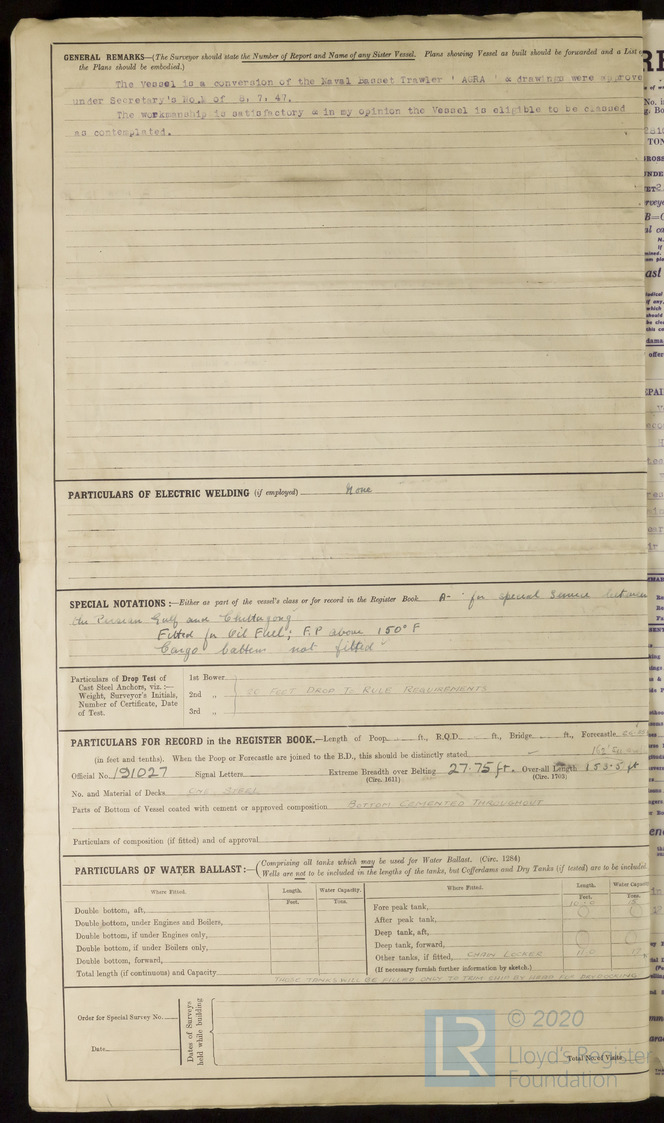 GENERAL REMARKS—(The Surveyor should state the Number of Report and Name of any Sister Vessel. Plans showing Vessel as built should be forwarded and a List
the Plans should be embodied.)
The Vessel is a conversion of the Naval Basset Trawler ' AGRA ' & drawings were approve
under Secretary's No.M of 6. 7. 47.
The workmanship is satisfactory & in my opinion the Vessel is eligible to be classed
as contemplated.
PARTICULARS OF ELECTRIC WELDING (if employed) None
SPECIAL NOTATIONS :—Either as part of the vessel's class or for record in the Register Book. A- for special Service between
the Persian Gulf and Chittagong
Fitted for Oil Fuel; F.P above 150° F
Cargo battens not fitted
Particulars of Drop Test of
Cast Steel Anchors, viz. :—
Weight, Surveyor's Initials,
Number of Certificate, Date
of Test.
1st Bower
2nd „ FOOT DROP TO RULE REQUIREMENTS
3rd „
PARTICULARS FOR RECORD in the REGISTER BOOK.—Length of Poop ft., R.Q.D. ft., Bridge ft., Forecastle
(in feet and tenths). When the Poop or Forecastle are joined to the B.D., this should be distinctly stated
Official No. 191027 Signal Letters Extreme Breadth over Belting 27.75 ft. Over-all Length 153.5 ft
(Circ. 1611) (Circ. 1703)
No. and Material of Decks ONE STEEL
Parts of Bottom of Vessel coated with cement or approved composition BOTTOM CEMENTED THROUGHOUT
Particulars of composition (if fitted) and of approval
PARTICULARS OF WATER BALLAST:—(Comprising all tanks which may be used for Water Ballast. (Circ. 1284)
Wells are not to be included in the lengths of the tanks, but Cofferdams and Dry Tanks (if tested) are to be included
Where Fitted. Length. Water Capacity. Where Fitted. Length. Water Capacity
Feet. Tons. Feet. Tons.
Double bottom, aft,
Double bottom, under Engines and Boilers,
Double bottom, if under Engines only,
Double bottom, if under Boilers only,
Double bottom, forward,
Total length (if continuous) and Capacity
Fore peak tank,
After peak tank,
Deep tank, aft,
Deep tank, forward,
Other tanks, if fitted, CHAIN LOCKER
(If necessary furnish further information by sketch.)
THOSE TANKS WILL BE FILLED ONLY TO TRIM SHIP BY HEAD FOR DRYDOCKING
Order for Special Survey No.
Date
Dates of Surveys
held while building
Total No. of Visits
LR
© 2020
Lloyd's Register
Foundation